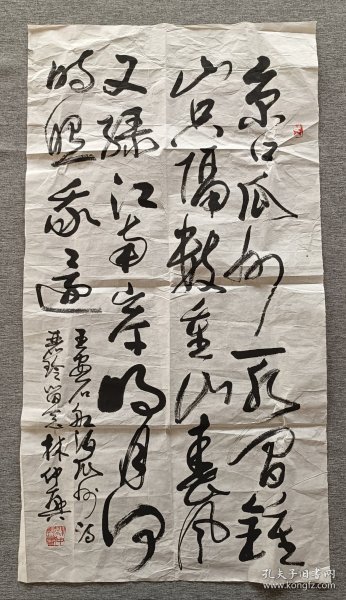 京口瓜州一水间钟
山只隔数重山春风
又绿江南岸明月何
时照我还
王安石船泊瓜州诗
林仲兴
孔夫子旧书网